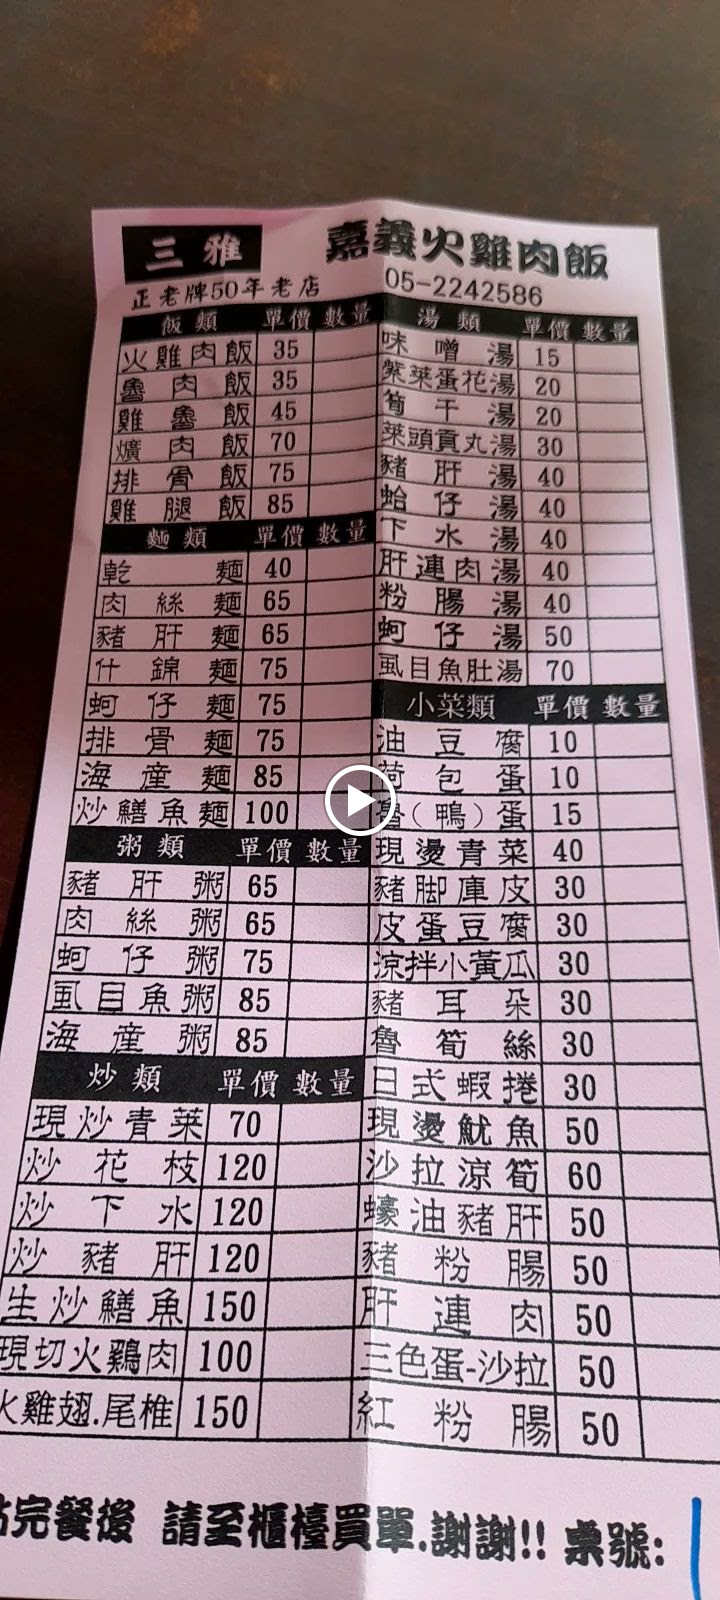 三雅 嘉義火雞肉飯
正老牌50年老店 05-2242586
飯類 單價 數量
火雞肉飯 35
魯肉飯 35
雞魯飯 45
爌肉飯 70
排骨飯 75
雞腿飯 85
麵類 單價 數量
乾麵 40
肉絲麵 65
豬肝麵 65
什錦麵 75
蚵仔麵 75
排骨麵 75
海產麵 85
炒鱔魚麵 100
粥類 單價 數量
豬肝粥 65
肉絲粥 65
蚵仔粥 75
虱目魚粥 85
海產粥 85
炒類 單價 數量
現炒青菜 70
炒花枝 120
炒下水 120
炒豬肝 120
生炒鱔魚 150
現切火鷄肉 100
火雞翅.尾椎 150
湯類 單價 數量
味噌湯 15
紫菜蛋花湯 20
筍干湯 20
菜頭貢丸湯 30
豬肝湯 40
蛤仔湯 40
下水湯 40
肝連肉湯 40
粉腸湯 40
蚵仔湯 50
虱目魚肚湯 70
小菜類 單價 數量
油豆腐 10
荷包蛋 10
魯(鴨)蛋 15
現燙青菜 40
豬脚庫皮 30
皮蛋豆腐 30
涼拌小黃瓜 30
豬耳朵 30
魯筍絲 30
日式蝦捲 30
現燙魷魚 50
沙拉涼筍 60
蠔油豬肝 50
豬粉腸 50
肝連肉 50
三色蛋-沙拉 50
紅粉腸 50
完餐後 請至櫃檯買單.謝謝!! 桌號: